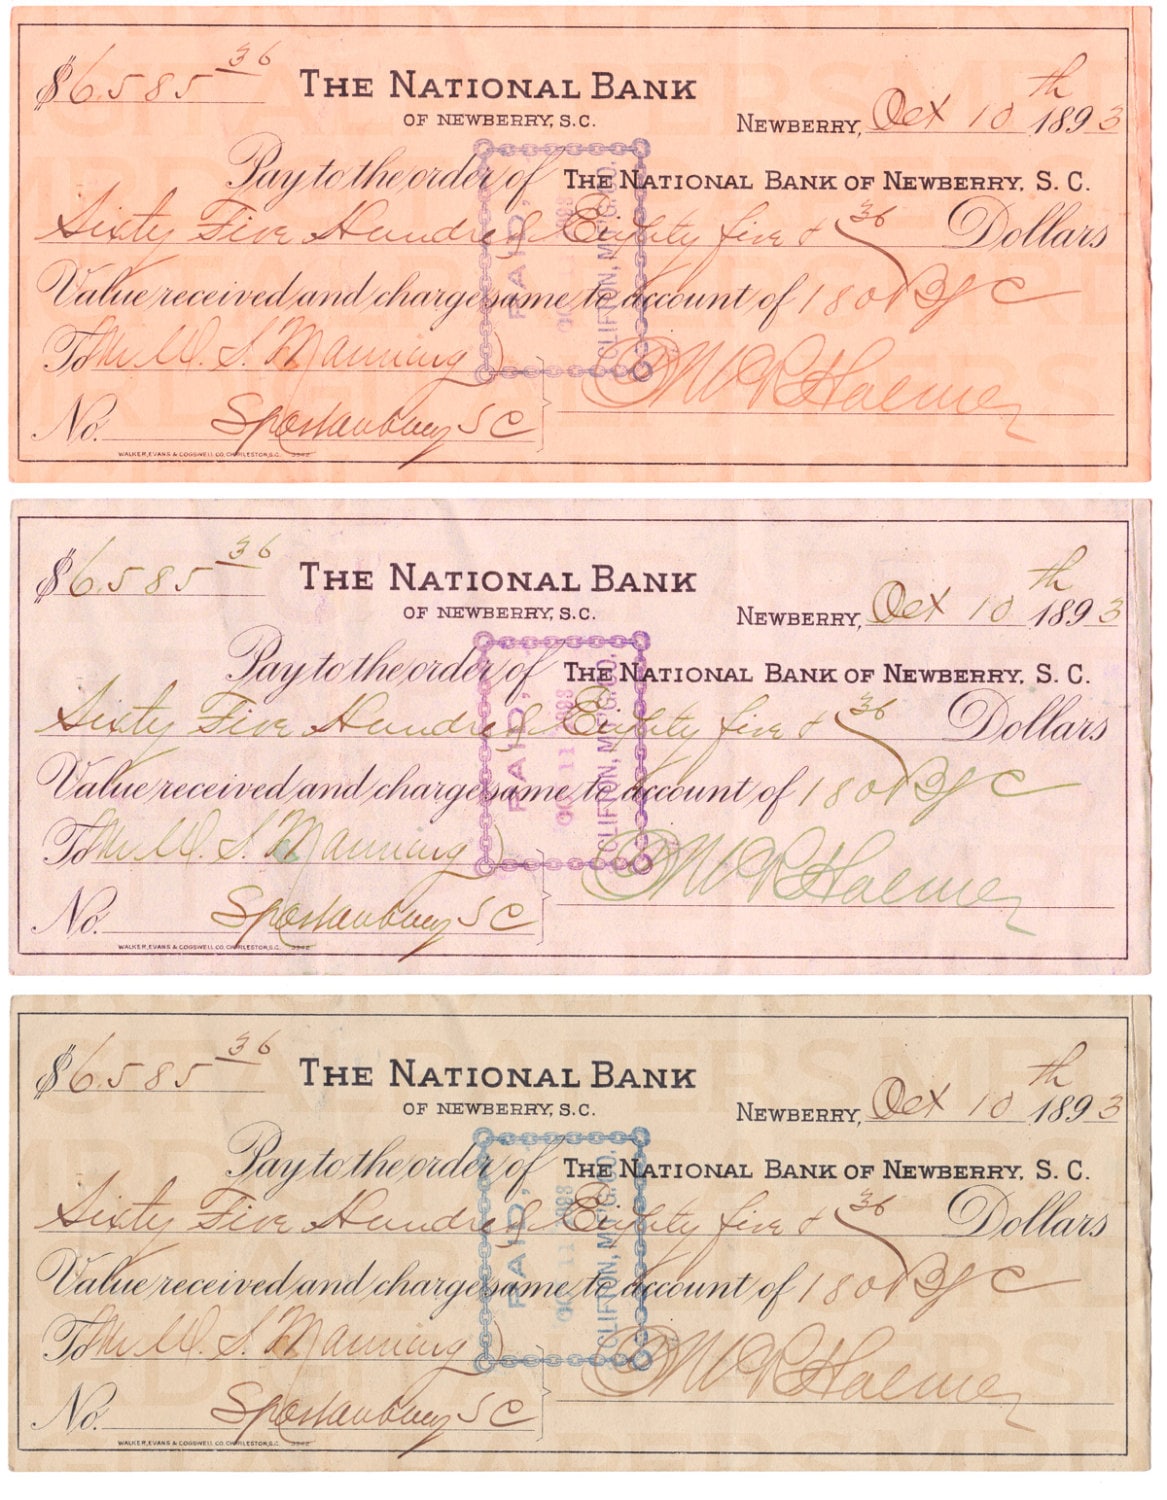 $6585 36
THE NATIONAL BANK
OF NEWBERRY, S.C.
NEWBERRY, Oct 10th 1893
Pay to the order of THE NATIONAL BANK OF NEWBERRY, S. C.
Sixty Five Hundred Eighty five & 36 Dollars
Value received and charge same to account of 180 B/C
To Mr W. S. Manning
No. Spartanburg SC
WALKER, EVANS & COGSWELL CO. CHARLESTON, S.C.
PAID,
CLIFTON, M'F'G. CO.
$6585 36
THE NATIONAL BANK
OF NEWBERRY, S.C.
NEWBERRY, Oct 10th 1893
Pay to the order of THE NATIONAL BANK OF NEWBERRY, S. C.
Sixty Five Hundred Eighty five & 36 Dollars
Value received and charge same to account of 180 B/C
To Mr W. S. Manning
No. Spartanburg SC
WALKER, EVANS & COGSWELL CO. CHARLESTON, S.C.
PAID,
OCT 11 1893
CLIFTON, M'F'G. CO.
$6585 36
THE NATIONAL BANK
OF NEWBERRY, S.C.
NEWBERRY, Oct 10th 1893
Pay to the order of THE NATIONAL BANK OF NEWBERRY, S. C.
Sixty Five Hundred Eighty five & 36 Dollars
Value received and charge same to account of 180 B/C
To Mr W. S. Manning
No. Spartanburg SC
WALKER, EVANS & COGSWELL CO. CHARLESTON, S.C.
PAID,
OCT 11 1893
CLIFTON, M'F'G. CO.